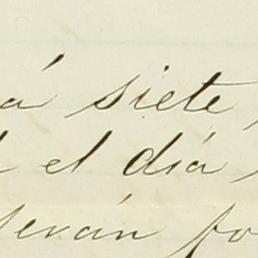 á siete
el día
serán